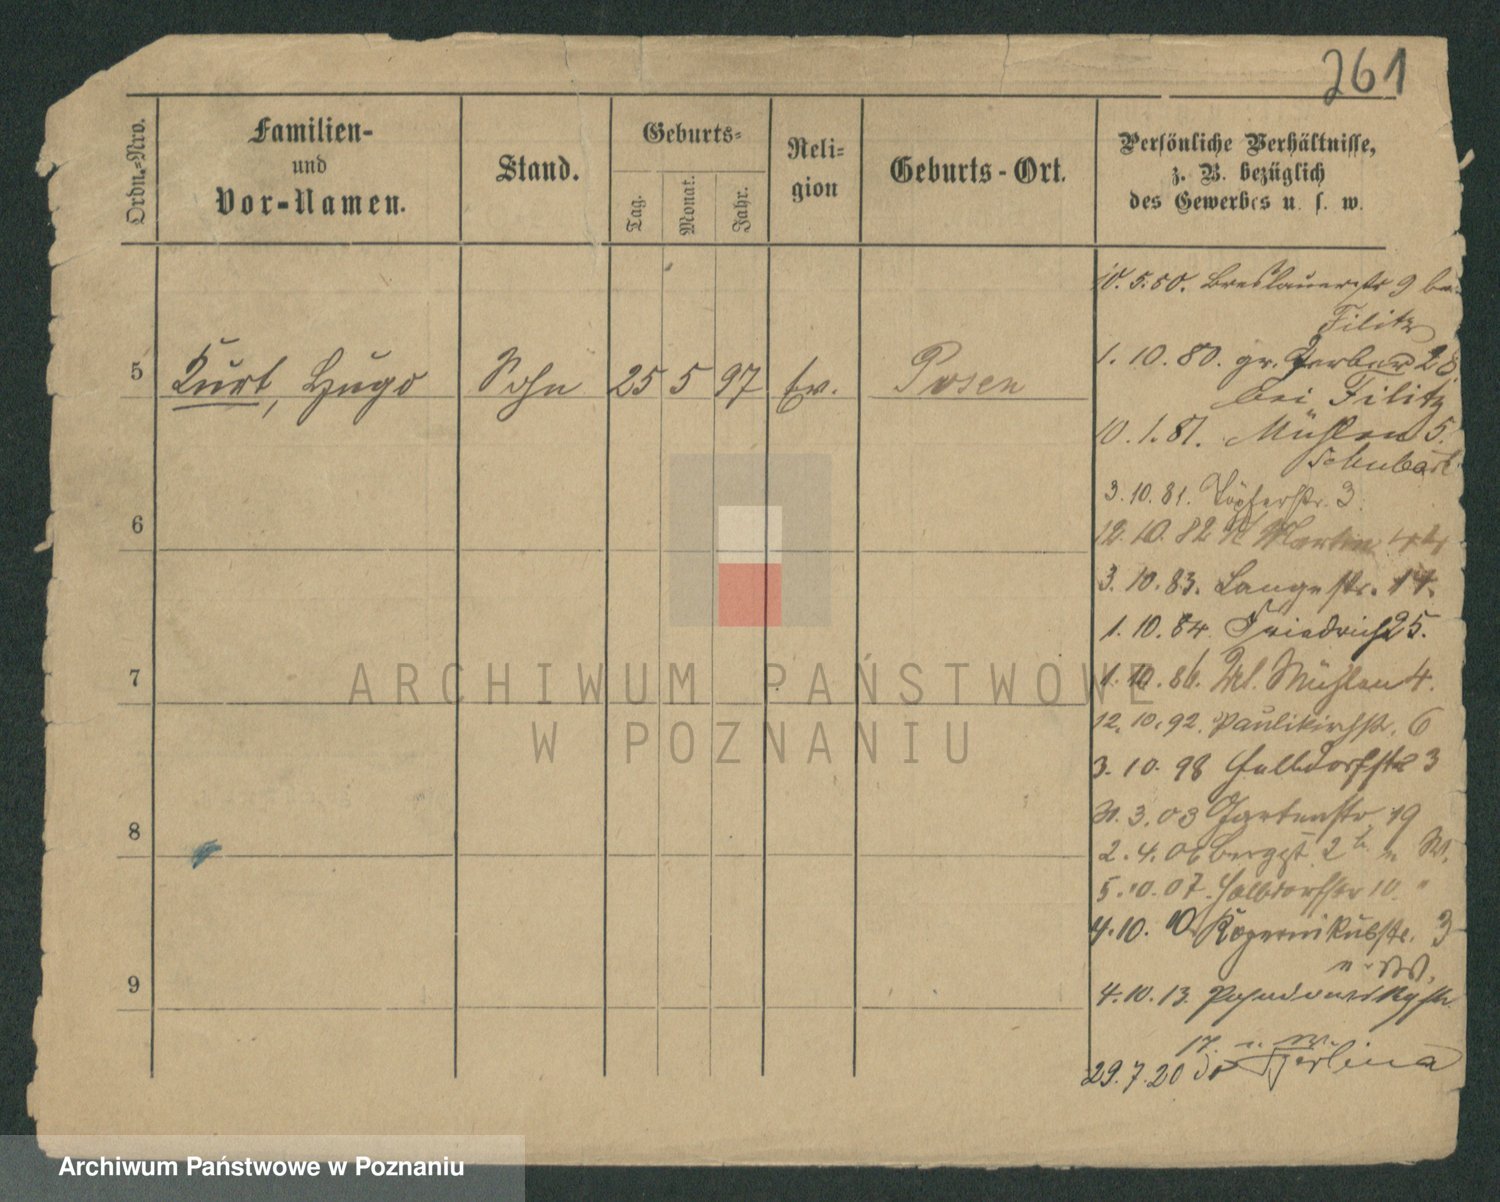 261
Ordn.-Nro.
Familien-
und
Vor-Namen.
Stand.
Geburts-
Tag.
Monat.
Jahr.
Reli-
gion
Geburts-Ort.
Persönliche Verhältnisse,
z. B. bezüglich
des Gewerbes u. s. w.
5
Kurt, Hugo
Sohn
25
5
97
Ev.
Posen
6
7
8
9
10. 5. 80. Breslauerstr 9 bei
Filitz
1. 10. 80. gr. Gerber 28
bei Filitz
10. 1. 81. Mühlen 5.
Schubert
3. 10. 81. Töpferstr. 3.
12. 10. 82 St Martin
3. 10. 83. Langestr. 14.
1. 10. 84. Friedrich 25.
1. 10. 86. Kl. Mühlen 4.
12. 10. 92. Paulikirchstr. 6
3. 10. 98 Halbdorfstr 3
3. 03 Gartenstr 19
2. 4. 06 Bergst. 2
5. 10. 07. Halbdorfstr 10. "
4. 10. 10 Kopernikusstr. 3
4. 10. 13.
17.
29. 7. 20
ARCHIWUM PAŃSTWOWE
W POZNANIU
Archiwum Państwowe w Poznaniu